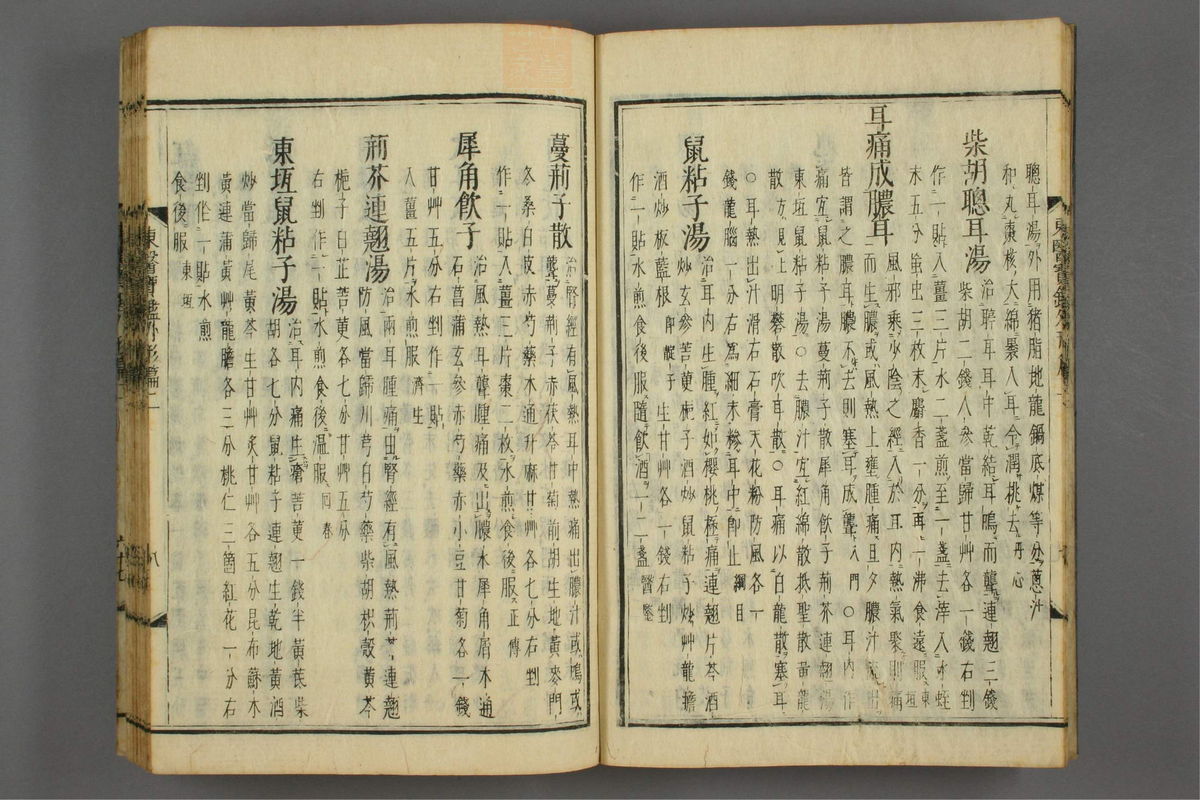 聰耳湯外用猪脂地龍鍋底煤等分葱汁
和丸棗核大綿裹入耳令潤挑去丹心
柴胡聰耳湯 治聤耳耳中乾結耳鳴而聾連翹三錢
柴胡二錢人參當歸甘艸各一錢右剉
作一貼入薑三片水二盞煎至一盞去滓入水蛭
末五分䖟虫三枚末麝香一分再一沸食遠服東垣
耳痛成膿耳 風邪乘少陰之經入於耳內熱氣聚則痛
而生膿或風熱上壅腫痛且夕膿汁流出
皆謂之膿耳膿不去則塞耳成聾入門○耳內作
痛宜鼠粘子湯蔓荊子散犀角飮子荊芥連翹湯
東垣鼠粘子湯○去膿汁宜紅綿散抵聖散黃龍
散方見上明礬散吹耳散○耳痛以白龍散塞耳
○耳熱出汁滑石石膏天花粉防風各一
錢龍腦一分右爲細末糝耳中卽止綱目
鼠粘子湯 治耳內生腫紅如櫻桃極痛連翹片芩酒
炒玄參苦莄梔子酒炒鼠粘子炒艸龍膽
酒炒板藍根卽靛子生甘艸各一錢右剉
作一貼水煎食後服隨飮酒一二盞醫鑒
蔓荊子散 治腎經有風熱耳中熱痛出膿汁或鳴或
聾蔓荊子赤茯苓甘菊前胡生地黃麥門
冬桑白皮赤芍藥木通升麻甘艸各七分右剉
作一貼入薑三片棗二枚水煎食後服正傳
犀角飮子 治風熱耳聾腫痛及出膿水犀角屑木通
石菖蒲玄參赤芍藥赤小豆甘菊各一錢
甘艸五分右剉作一貼
入薑五片水煎服濟生
荊芥連翹湯 治兩耳腫痛出腎經有風熱荊芥連翹
防風當歸川芎白芍藥柴胡枳殼黃芩
梔子白芷苦莄各七分甘艸五分
右剉作一貼水煎食後溫服回春
東垣鼠粘子湯 治耳內痛生瘡苦莄一錢半黃芪柴
胡各七分鼠粘子連翹生乾地黃酒
炒當歸尾黃芩生甘艸炙甘艸各五分昆布蘇木
黃連蒲黃艸龍膽各三分桃仁三箇紅花一分右
剉作一貼水煎
食後服東垣
東醫寶鑑外形篇二